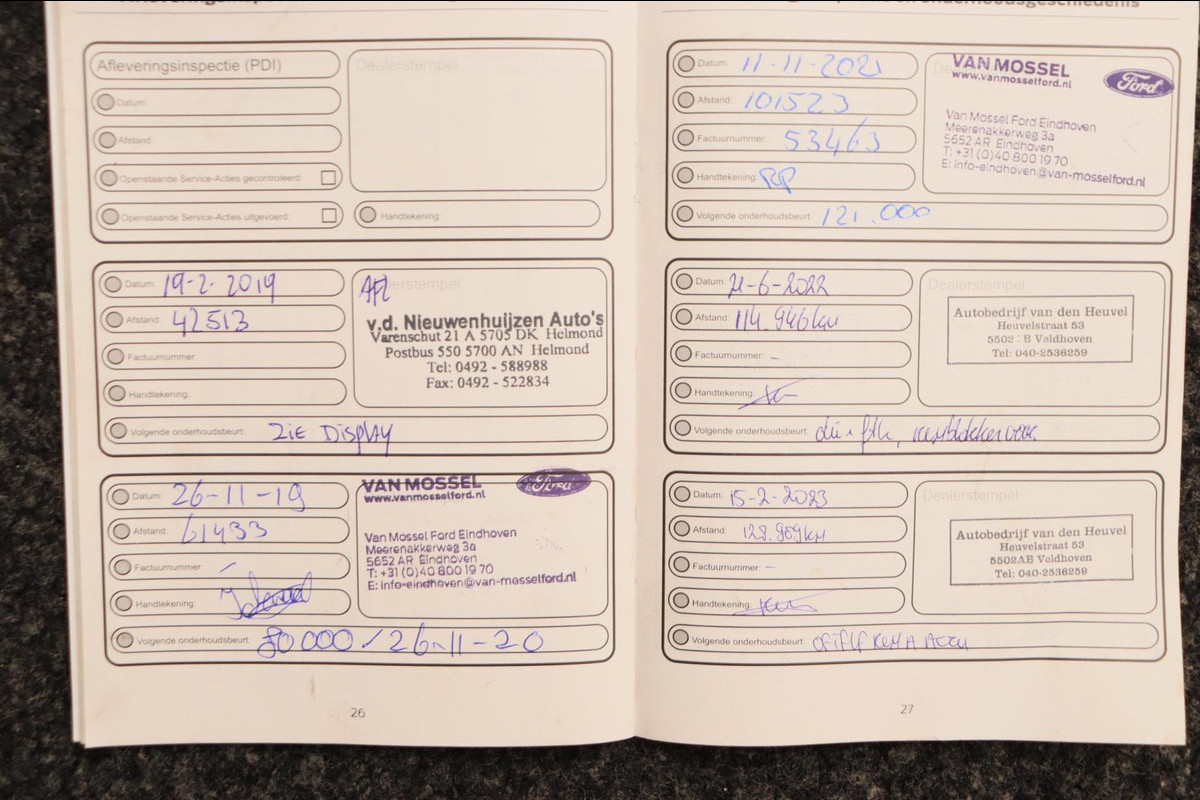 Afleveringsinspectie (PDI)
Dealerstempel
Datum:
Afstand:
Openstaande Service-Acties gecontroleerd:
Openstaande Service-Acties uitgevoerd:
Handtekening:
Datum: 19-2-2019
Afstand: 42513
Factuurnummer:
Handtekening:
Volgende onderhoudsbeurt: ZIE DISPLAY
AFL
Dealerstempel
v.d. Nieuwenhuijzen Auto's
Varenschut 21 A 5705 DK Helmond
Postbus 550 5700 AN Helmond
Tel: 0492 - 588988
Fax: 0492 - 522834
Datum: 26-11-19
Afstand: 61433
Factuurnummer:
Handtekening:
Volgende onderhoudsbeurt: 80000 / 26-11-20
VAN MOSSEL
www.vanmosselford.nl
Ford
Van Mossel Ford Eindhoven
Meerenakkerweg 3a
5652 AR Eindhoven
T: +31 (0)40 800 19 70
E: info-eindhoven@van-mosselford.nl
26
onderhoudsgeschiedenis
Datum: 11-11-2021
Afstand: 101523
Factuurnummer: 53463
Handtekening: RP
Volgende onderhoudsbeurt: 121.000
VAN MOSSEL
www.vanmosselford.nl
Ford
Van Mossel Ford Eindhoven
Meerenakkerweg 3a
5652 AR Eindhoven
T: +31 (0)40 800 19 70
E: info-eindhoven@van-mosselford.nl
Datum: 21-6-2022
Afstand: 114.946km
Factuurnummer: -
Handtekening:
Volgende onderhoudsbeurt:
Dealerstempel
Autobedrijf van den Heuvel
Heuvelstraat 53
5502 B Veldhoven
Tel: 040-2536259
Datum: 15-2-2023
Afstand: 128.909km
Factuurnummer: -
Handtekening:
Volgende onderhoudsbeurt:
Dealerstempel
Autobedrijf van den Heuvel
Heuvelstraat 53
5502AB Veldhoven
Tel: 040-2536259
27